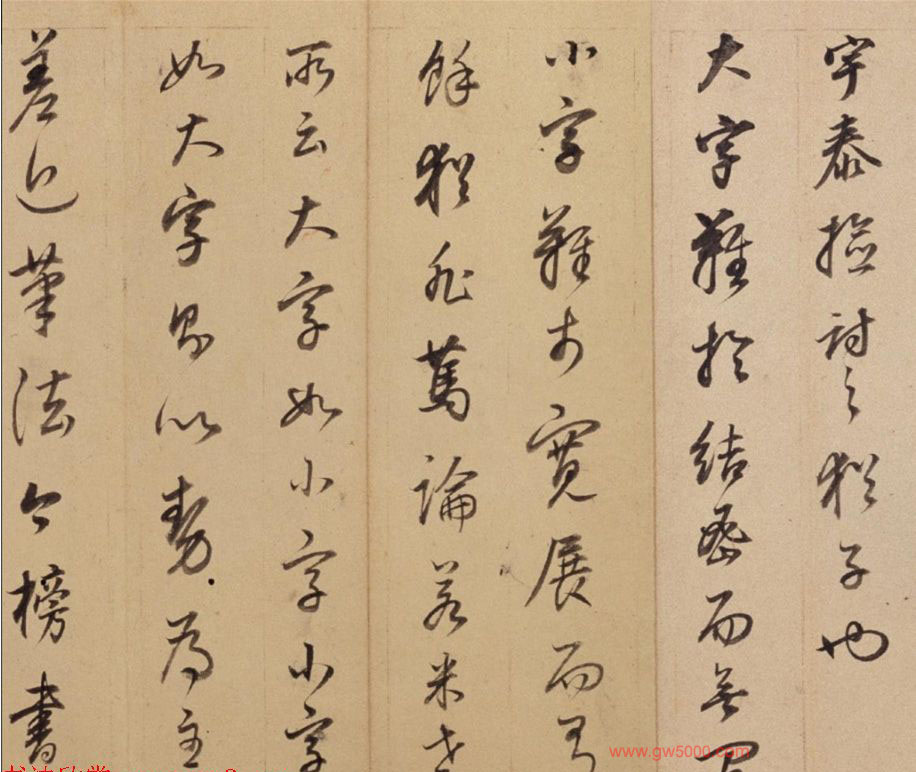 宇泰撿討之猶子也
大字難於結密而無
小字難於寬展而有
餘猶非篤論若米老
所云大字如小字小字
如大字則以勢為主
差近筆法今榜書
www.gw5000.com